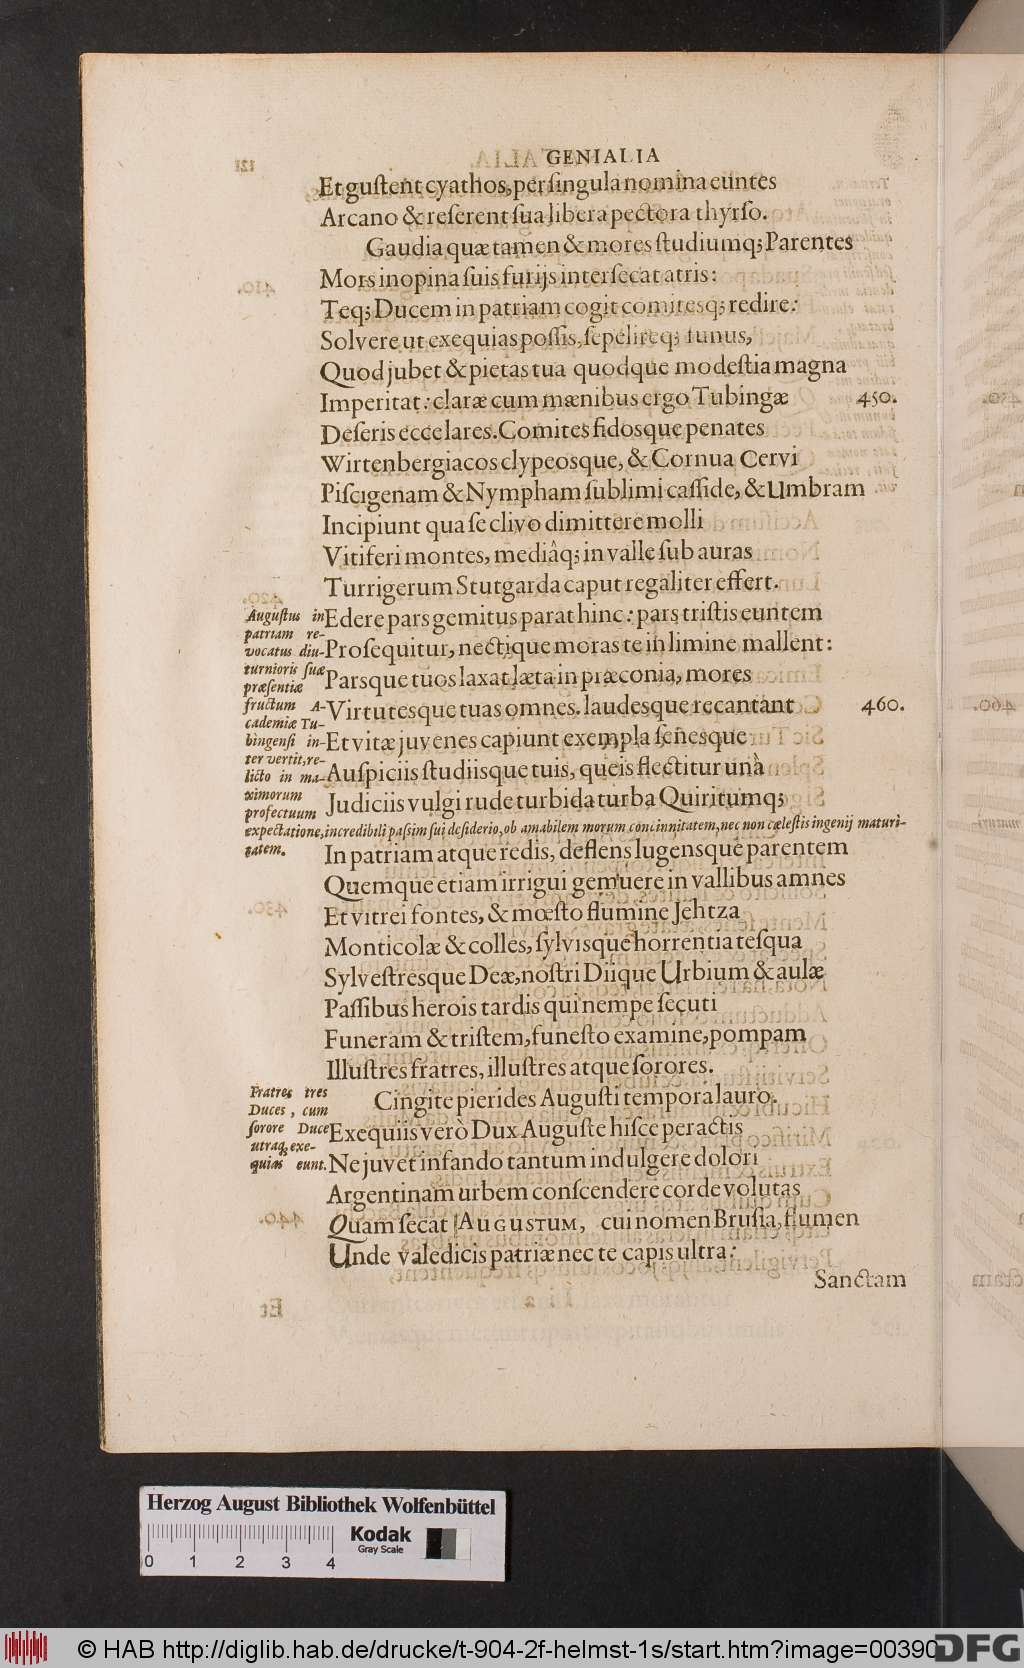 GENIALIA
Et guſtent cyathos, per ſingula nomina euntes
Arcano & referent ſua libera pectora thyrſo.
Gaudia quæ tamen & mores ſtudiumq; Parentes
Mors inopina ſuis furijs interſecat atris:
Teq; Ducem in patriam cogit comitesq; redire:
Solvere ut exequias poſſis, ſepelireq; funus,
Quod jubet & pietas tua quodque modeſtia magna
Imperitat: claræ cum mænibus ergo Tubingæ 450.
Deſeris ecce lares. Comites fidosque penates
Wirtenbergiacos clypeosque, & Cornua Cervi
Piſcigenam & Nympham ſublimi caſſide, & Umbram
Incipiunt qua ſe clivo dimittere molli
Vitiferi montes, mediâq; in valle ſub auras
Turrigerum Stutgarda caput regaliter effert.
Auguſtus in patriam revocatus diu-
turnioris ſuæ præſentiæ
fructum A-
cademiæ Tu-
bingenſi in-
tervertit, re-
licto in ma-
ximorum
profectuum
expectatione, incredibili paſsim ſui deſiderio, ob amabilem morum concinnitatem, nec non cæleſtis ingenij maturi-
tatem.
Edere pars gemitus parat hinc: pars triſtis euntem
Proſequitur, nectique moras te in limine mallent:
Parsque tuos laxat læta in præconia, mores
Virtutesque tuas omnes. laudesque recantant 460.
Et vitæ juvenes capiunt exempla ſenesque
Auſpiciis ſtudiisque tuis, queis flectitur unà
Judiciis vulgi rude turbida turba Quiritumq;
In patriam atque redis, deflens lugensque parentem
Quemque etiam irrigui gemuere in vallibus amnes
Et vitrei fontes, & mœſto flumine Jehtza
Monticolæ & colles, ſylvisque horrentia teſqua
Sylveſtresque Deæ, noſtri Diique Urbium & aulæ
Paſſibus herois tardis qui nempe ſecuti
Funeram & triſtem, funeſto examine, pompam
Illuſtres fratres, illuſtres atque ſorores.
Fratres tres
Duces, cum
ſorore Duce
utraq; exe-
quias eunt.
Cingite pierides Auguſti tempora lauro.
Exequiis verò Dux Auguſte hiſce peractis
Ne juvet infando tantum indulgere dolori
Argentinam urbem conſcendere corde volutas
Quam ſecat AUGUSTUM, cui nomen Bruſia, flumen
Unde valedicis patriæ nec te capis ultra:
Sanctam
Herzog August Bibliothek Wolfenbüttel
Kodak
Gray Scale
0 1 2 3 4
© HAB http://diglib.hab.de/drucke/t-904-2f-helmst-1s/start.htm?image=00390
DFG